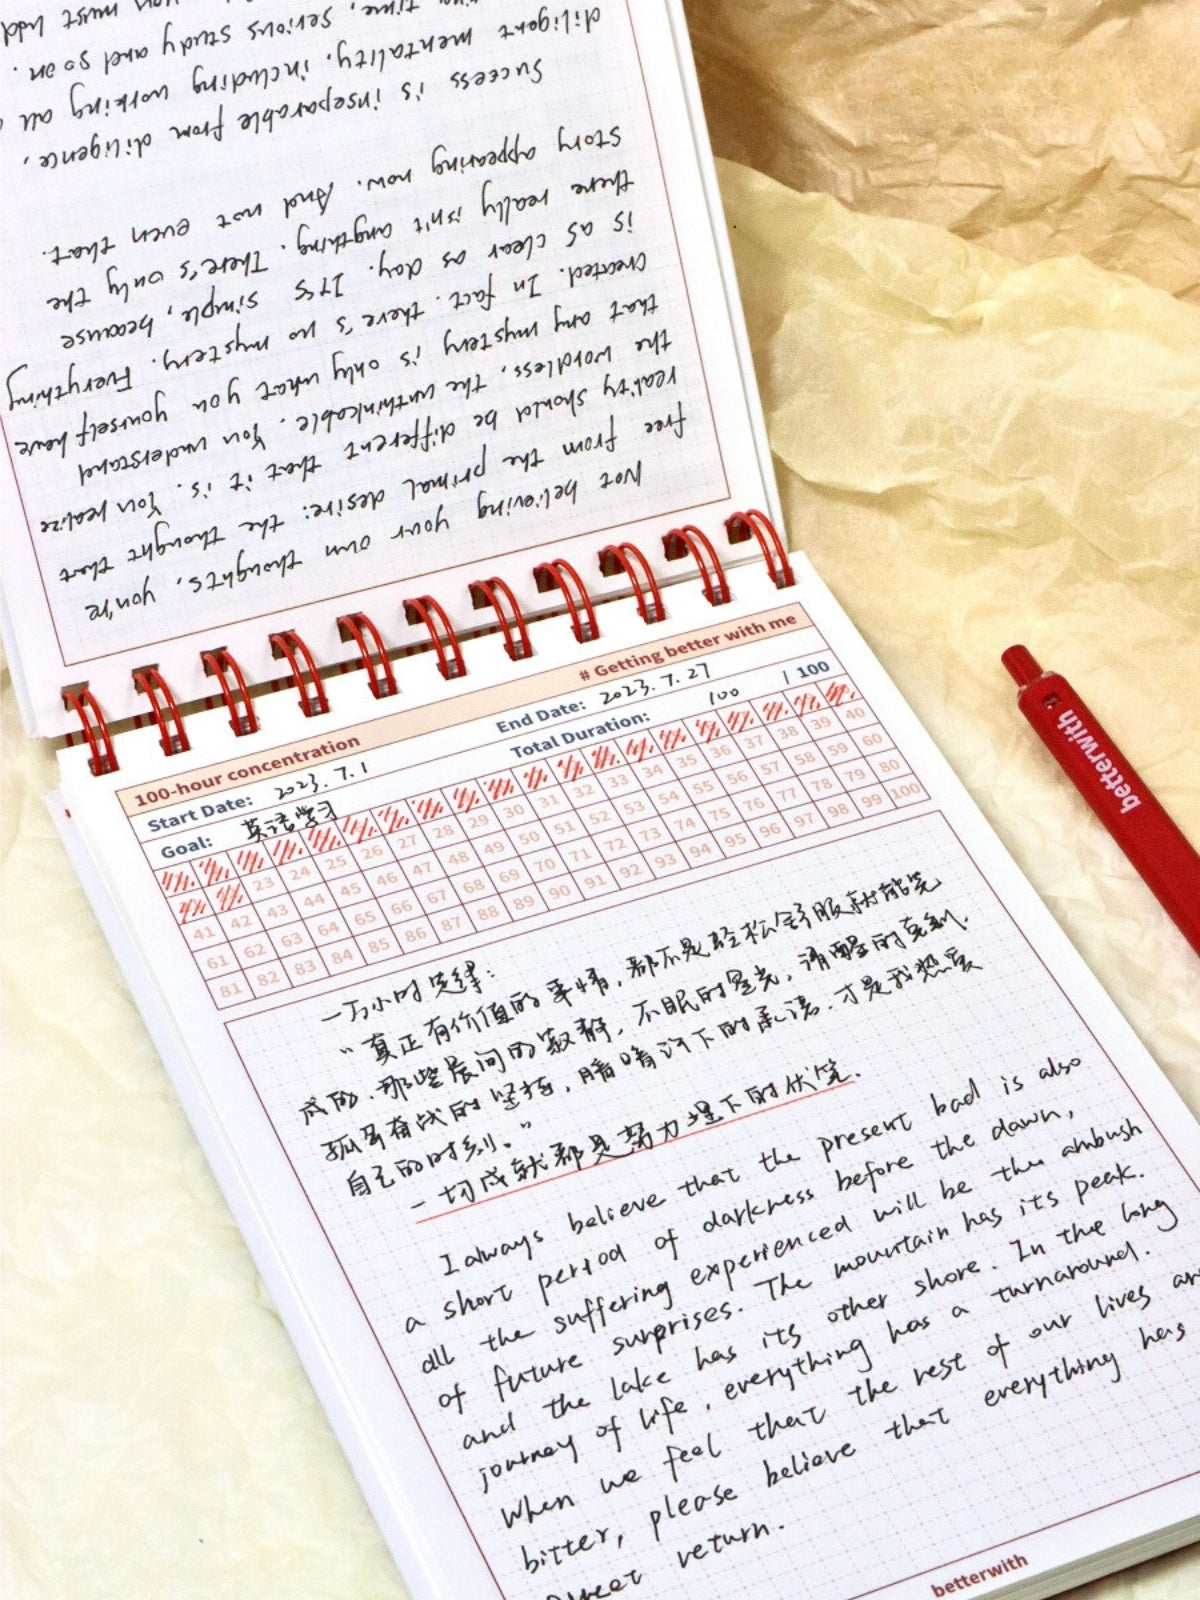 Not believing your own thoughts, you're
free from the primal desire: the thought that
reality should be different that it is. You realize
the wordless, the unthinkable. You understand
that any mystery is only what you yourself have
created. In fact. there's no mystery. Everything
is as clear as day. It's simple, because
there really isn't anything. There's only the
story appearing now. And not even that.
Success is inseparable from diligence,
diligent mentality, including working all
time, serious study and soon.
you must add
100-hour concentration # Getting better with me
Start Date: 2023.7.1 End Date: 2023.7.27
Goal: 英语学习 Total Duration: 100 | 100
23 24 25 26 27 28 29 30 31 32 33 34 35 36 37 38 39 40
41 42 43 44 45 46 47 48 49 50 51 52 53 54 55 56 57 58 59 60
61 62 63 64 65 66 67 68 69 70 71 72 73 74 75 76 77 78 79 80
81 82 83 84 85 86 87 88 89 90 91 92 93 94 95 96 97 98 99 100
一万小时定律：
“真正有价值的事情，都不是轻松舒服就能完
成的，那些晨间的寂静，不眠的星光，清醒的克制，
孤军奋战的坚持，暗暗许下的承诺，才是我热爱
自己的时刻。”
一切成就都是努力埋下的伏笔.
I always believe that the present bad is also
a short period of darkness before the dawn,
all the suffering experienced will be the ambush
of future surprises. The mountain has its peak.
and the lake has its other shore. In the long
journey of life, everything has a turnaround.
When we feel that the rest of our lives are
bitter, please believe that everything has
sweet return.
betterwith
betterwith